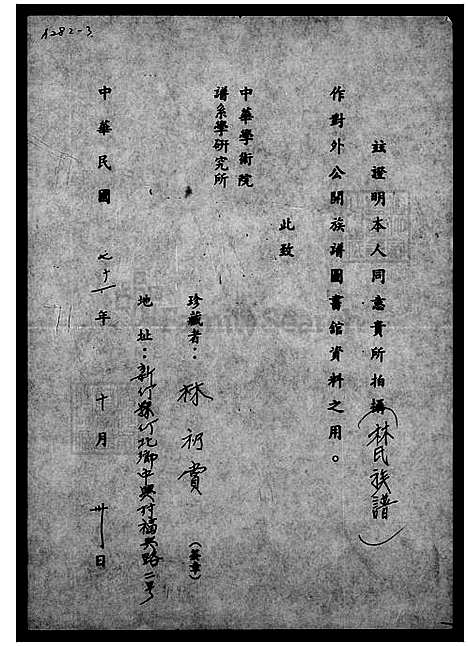 1282-3
茲證明本人同意貴所拍攝(林氏族譜)
作對外公開族譜圖書館資料之用。
此致
中華學術院
譜系學研究所
珍藏者：林初賞(簽章)
地址：新竹縣竹北鄉中興村福興路二号
中華民國七十一年十月卅日